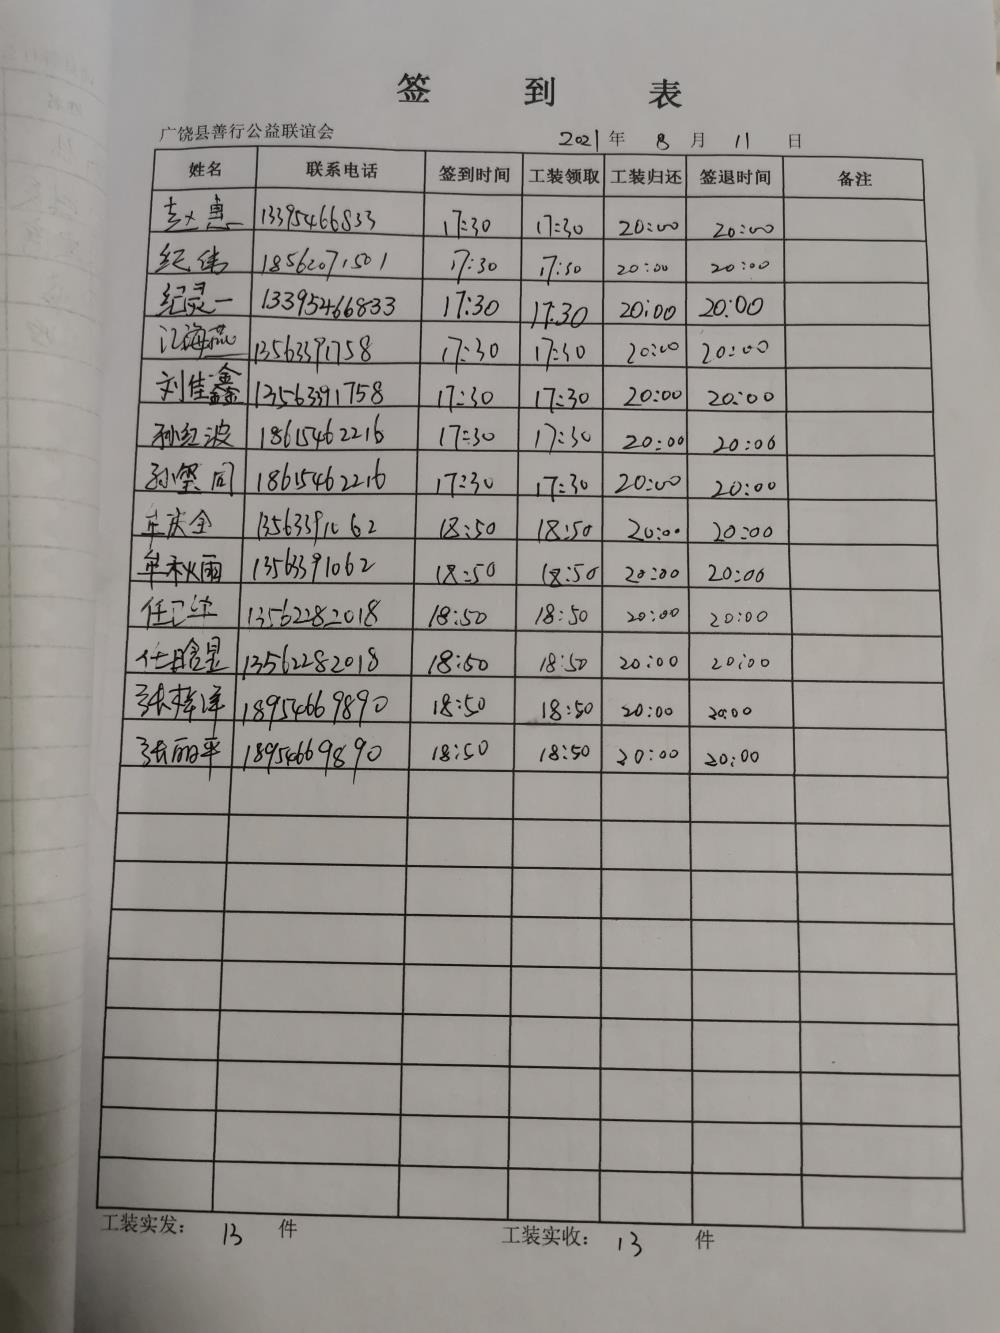 签 到 表
广饶县善行公益联谊会 2021 年 8 月 11 日
姓名 联系电话 签到时间 工装领取 工装归还 签退时间 备注
惠 13395466833 17:30 17:30 20:00 20:00
纪伟 18562071501 17:30 17:30 20:00 20:00
纪灵一 13395466833 17:30 17:30 20:00 20:00
江海燕 13563391758 17:30 17:30 20:00 20:00
刘佳鑫 13563391758 17:30 17:30 20:00 20:00
孙红波 18615462216 17:30 17:30 20:00 20:00
孙玺同 18615462216 17:30 17:30 20:00 20:00
牟庆全 13563391062 18:50 18:50 20:00 20:00
牟秋雨 13563391062 18:50 18:50 20:00 20:00
任卫华 13562282018 18:50 18:50 20:00 20:00
任晗昱 13562282018 18:50 18:50 20:00 20:00
张梓洋 18954669890 18:50 18:50 20:00 20:00
张丽平 18954669890 18:50 18:50 20:00 20:00
工装实发: 13 件 工装实收: 13 件